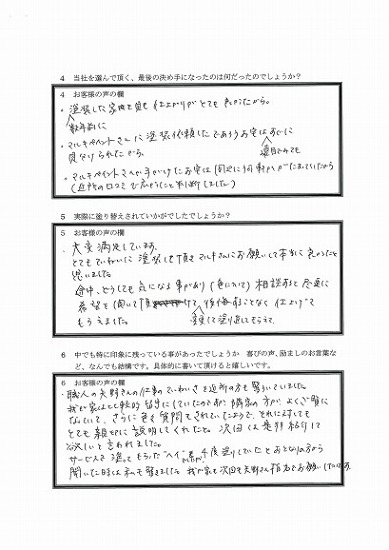 4 当社を選んで頂く、最後の決め手になったのは何だったのでしょうか？
4 お客様の声の欄
・塗装した家何を見 仕上がりがとても良かったから。
数年前に
・マルキペイントさんに塗装依頼したであろうお宅はすぐに
見分けられたから。
遠目でみても
・マルキペイントさんが手がけたお宅は周辺に何軒か
(近所の口コミで広がったことも判断しました)
5 実際に塗り替えされていかがでしたでしょうか？
5 お客様の声の欄
大変満足しています。
とてもていねいに塗装して頂き マルキさんにお願いして本当に良かったと
思いました。
途中、どうしても気になる事があり(色について)相談すると早速に
希望を聞いて頂 て、後悔することなく仕上げて
もらえました。
塗り直してもらえて。
6 中でも特に印象に残っている事があったでしょうか 喜びの声、励ましのお言葉な
ど、なんでも結構です。具体的に書いて頂けると嬉しいです。
6 お客様の声の欄
職人の矢野さんの仕事のていねいさを近所の方も驚いていました。
我が家はほとんど留守にしていたのですが 隣家の方が よくご覧に
なっていて、さらに色々質問もされていたようで、それに対しても
とても親切に説明してくれたと。次回は是非紹介して
欲しいと言われました。
サービスで塗ってもらった"ヘイ" 千度塗りしていたとおとなりの方から
聞いた時は私も驚きました。我が家も次回も矢野さん指名でお願いしたいです。